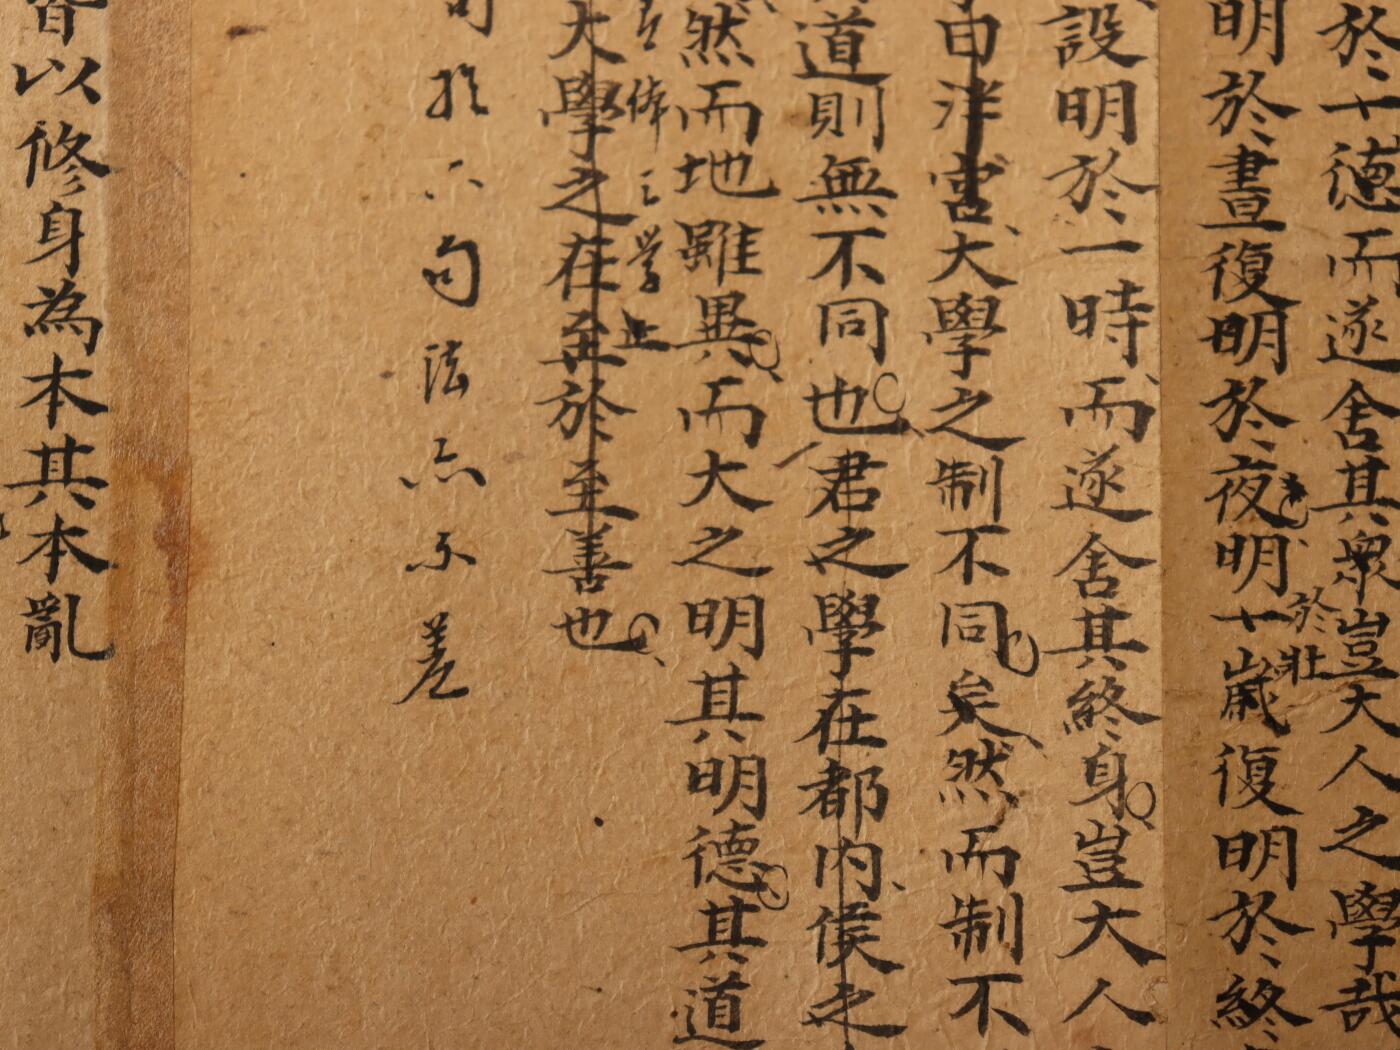 於十德而遂舍其衆豈大人之學哉
明於晝復明於夜明十歲復明於終
於壯
設明於一時而遂舍其終身豈大人
曰泮宮大學之制不同矣然而制不
道則無不同也君之學在都內侯之
然而地雖異而大之明其明德其道
學止
大學之在至於至善也
句法亦不差
皆以修身為本其本亂